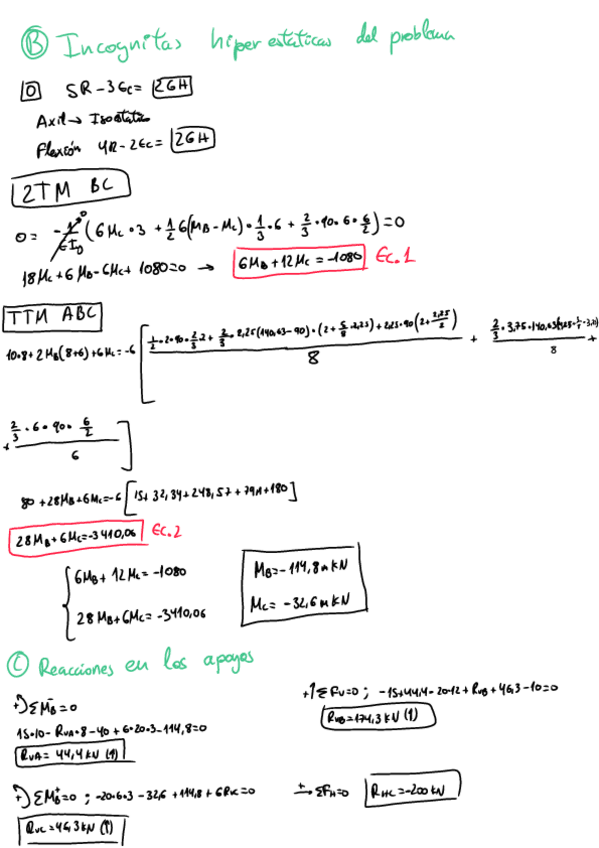 Ⓑ Incognitas hiperestaticas del problema
0 SR-3Ec= 2GH
Axil → Isostatico
Flexión 4R-2Ec= 2GH
2TM BC
0= -1/EI₀ (6Mc·3 + 1/2 6(MB-Mc)·1/3·6 + 2/3·90·6·6/2)=0
18Mc+6MB-6Mc+1080=0 → 6MB+12Mc=-1080 Ec.1
TTM ABC
10·8+2MB(8+6)+6Mc=-6[ (1/2·2·90·2/3·2+2/3·2,25(140,63-90)·(2+5/8·2,25)+2,25·90(2+2,25/2))/8 +
+ (2/3·6·90·6/2)/6 ]
80+28MB+6Mc=-6[15+32,34+248,57+791+180]
28MB+6Mc=-3410,06 Ec.2
6MB+12Mc=-1080
28MB+6Mc=-3410,06
MB=-114,8mkN
Mc=-32,6mkN
Ⓒ Reacciones en los apoyos
+) ΣMB⁻=0
15·10-RVA·8-40+6·20·3-114,8=0
RVA=44,4kN (↑)
+) ΣMB⁺=0; -20·6·3-32,6+114,8+6RVC=0
RVC=46,3kN (↑)
+↑ΣFV=0; -15+44,4-20·12+RVB+46,3-10=0
RVB=174,3kN (↑)
+→ ΣFH=0 RHC=-200kN